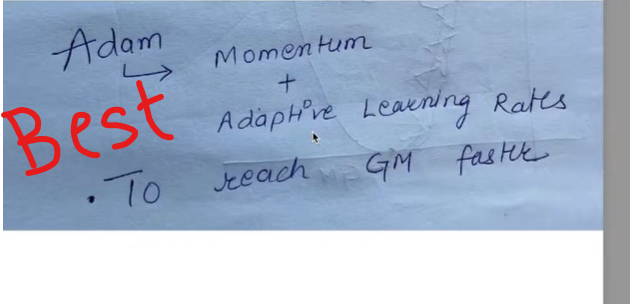 Adam
↳ Momentum
+
Adaptive Learning Rates
Best
. To reach GM faster